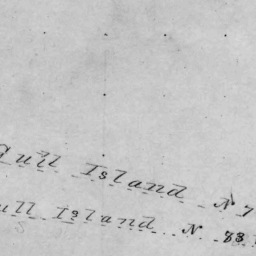 Gull Island N 7
ull Island N. 83